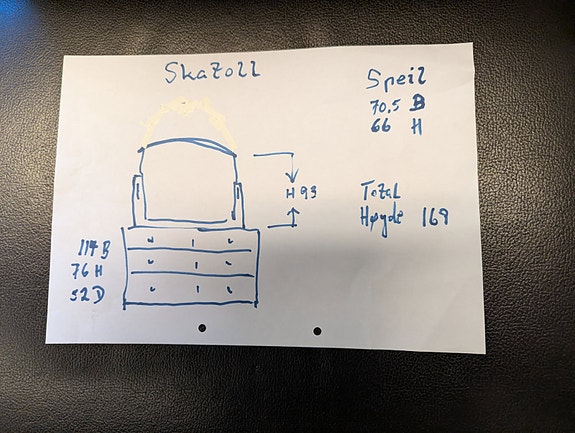 Skatoll
Speil
70.5 B
66 H
H 93
Total
Høyde 169
114 B
76 H
52 D